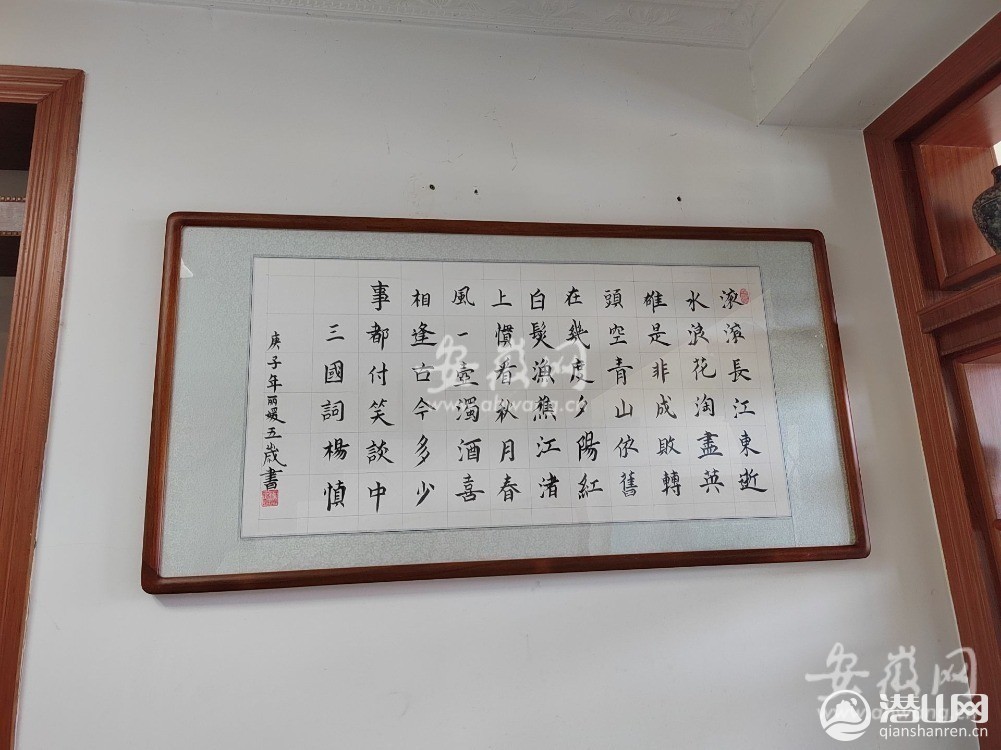 滾滾長江東逝
水浪花淘盡英
雄是非成敗轉
頭空青山依舊
在幾度夕陽紅
白髮漁樵江渚
上慣看秋月春
風一壺濁酒喜
相逢古今多少
事都付笑談中
三國詞楊慎
庚子年丽媛五歲書
安徽网
ahwang.cn
安徽网
潜山网
qianshanren.cn